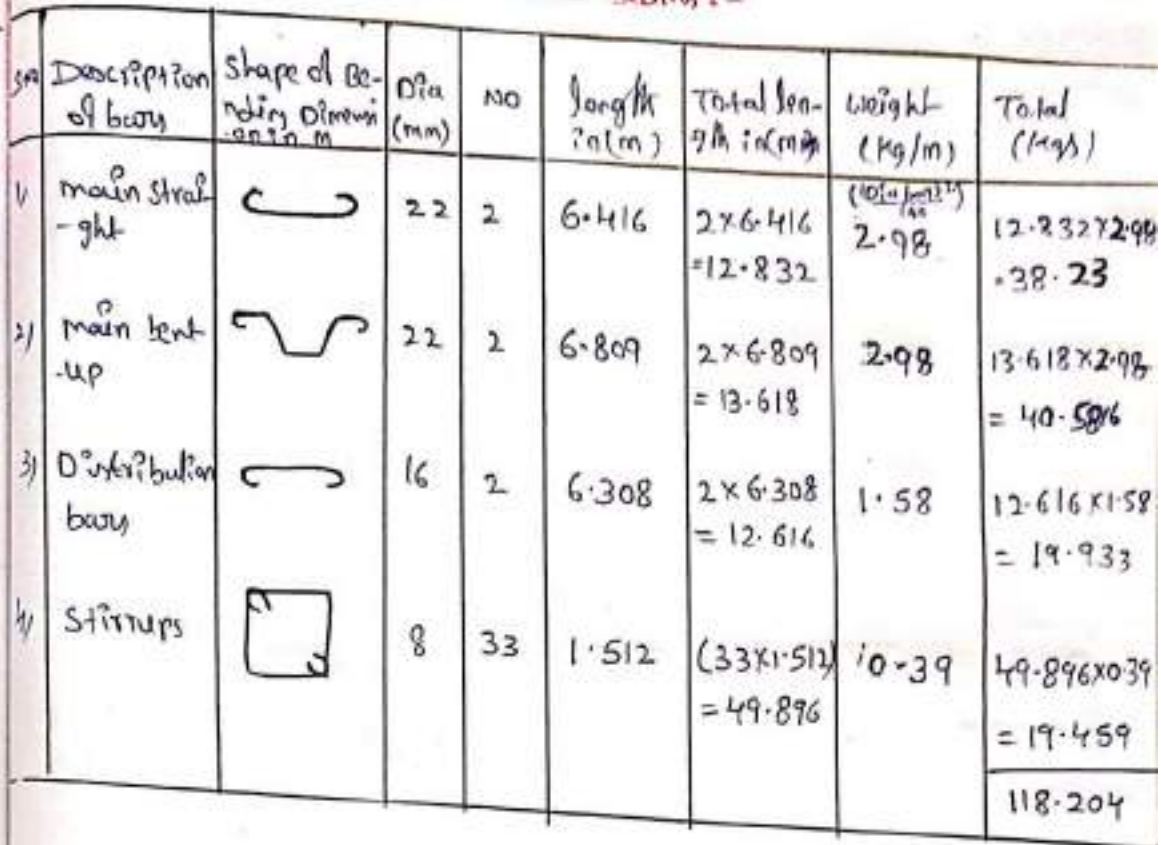 Sr no
Description
of bars
Shape of Be-
nding Dimensi
-on in m
Dia
(mm)
NO
length
in(m)
Total len-
gth in(m)
weight
(kg/m)
Total
(kgs)
1/
main strai
-ght
22
2
6.416
2×6.416
=12.832
2.98
12.832×2.98
=38.23
2/
main bent
-up
22
2
6.809
2×6.809
= 13.618
2.98
13.618×2.98
= 40.5816
3/
Distribution
bars
16
2
6.308
2×6.308
= 12.616
1.58
12.616×1.58
= 19.933
4/
Stirrups
8
33
1.512
(33×1.512)
= 49.896
0.39
49.896×0.39
= 19.459
118.204